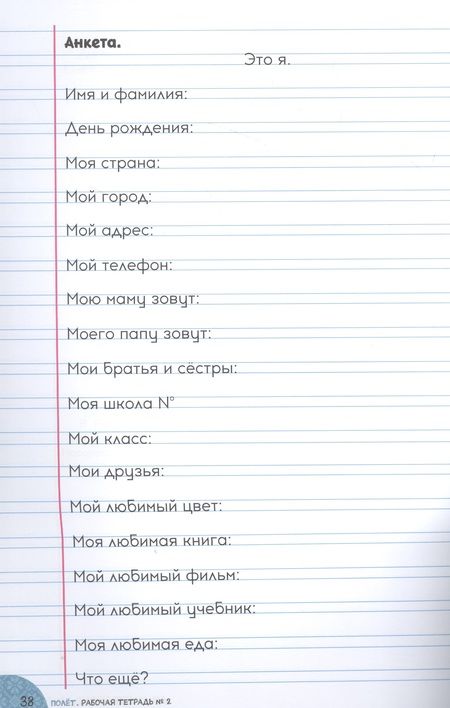 Анкета.
Это я.
Имя и фамилия:
День рождения:
Моя страна:
Мой город:
Мой адрес:
Мой телефон:
Мою маму зовут:
Моего папу зовут:
Мои братья и сёстры:
Моя школа N°
Мой класс:
Мои друзья:
Мой любимый цвет:
Моя любимая книга:
Мой любимый фильм:
Мой любимый учебник:
Моя любимая еда:
Что ещё?
38 ПОЛЁТ. РАБОЧАЯ ТЕТРАДЬ № 2